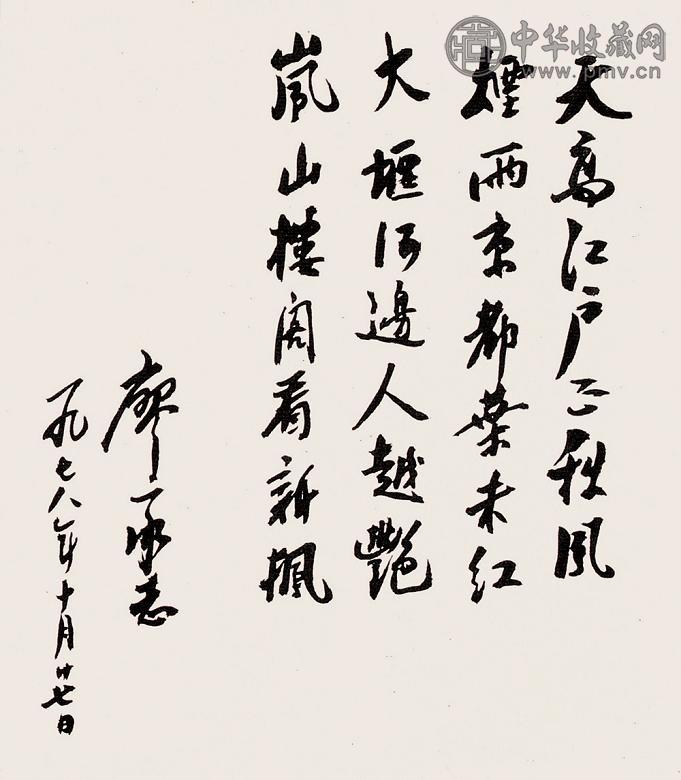 中华收藏网
www.pmv.cn
天高江户正秋风
煙雨京都葉未红
大堰河邊人越艷
嵐山樓阁看新楓
廖承志
一九七八年十月廿七日